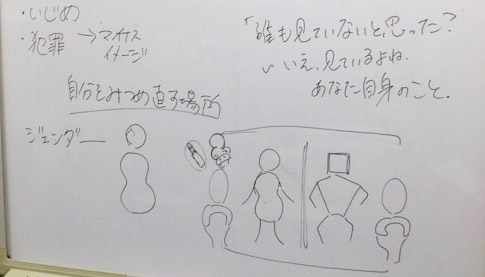 ・いじめ
・犯罪 → マイナス
イメージ
自分をみつめ直す場所
ジェンダー
「誰も見ていないと思った?
いいえ、見ているよね。
あなた自身のこと。